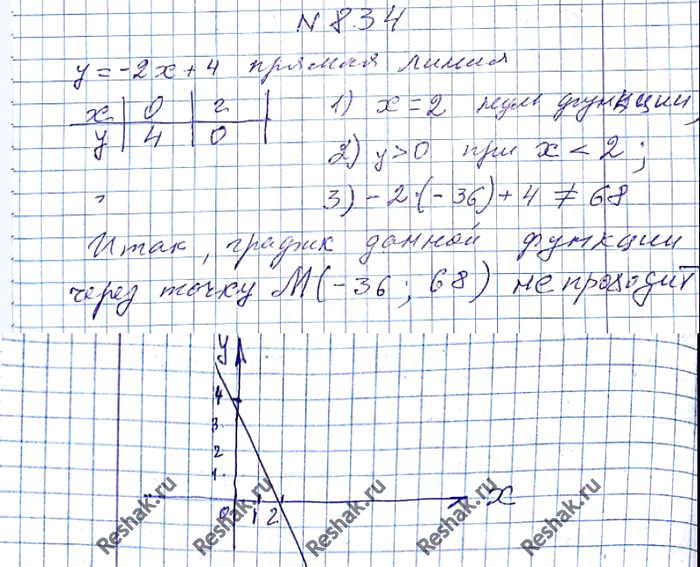 N 834
y = -2x + 4 прямая линия
x | 0 | 2 |
y | 4 | 0 |
1) x = 2 нуль функции,
2) y > 0 при x < 2 ;
3) - 2·(- 36) + 4 ≠ 68
Итак, график данной функции
через точку M(-36 ; 68) не проходит
y
4
3
2
1
0 1 2 x
Reshak.ru Reshak.ru Reshak.ru Reshak.ru Reshak.ru